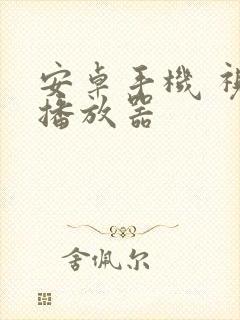 安卓手機
播放器
舍佩尔